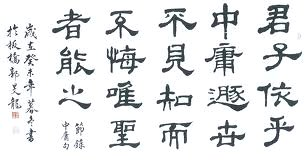 君子依乎
中庸遯世
不見知而
不悔唯聖
者能之
節錄
中庸句
歲在癸未年暮冬書
於板橋鄧昊龍